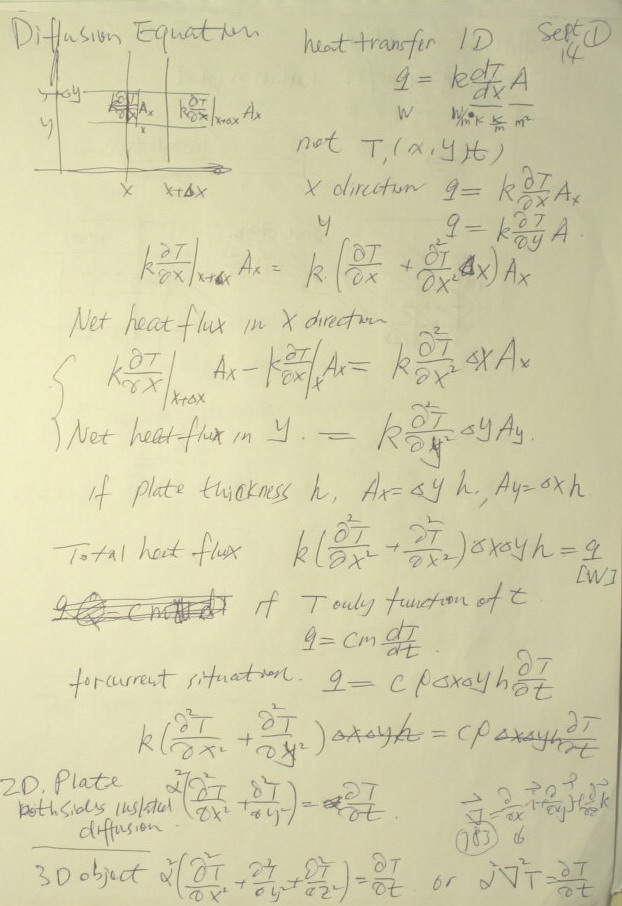 Diffusion Equation
heat transfer 1D
Sept 14 ①
q = k dT/dx A
W W/m°K K/m m²
y+Δy
y
k ∂T/∂x|x Ax
k ∂T/∂x|x+Δx Ax
x x+Δx
not T, (x, y, t)
x direction q = k ∂T/∂x Ax
y q = k ∂T/∂y A
k ∂T/∂x|x+Δx Ax = k (∂T/∂x + ∂²T/∂x² Δx) Ax
Net heat flux in x direction
k ∂T/∂x|x+Δx Ax - k ∂T/∂x|x Ax = k ∂²T/∂x² Δx Ax
Net heat flux in y. = k ∂²T/∂y² Δy Ay.
if plate thickness h, Ax = Δy h, Ay = Δx h
Total heat flux k (∂²T/∂x² + ∂²T/∂x²) Δx Δy h = q
[W]
if T only function of t
q = cm dT/dt.
for current situation. q = c ρ Δx Δy h ∂T/∂t
k (∂²T/∂x² + ∂²T/∂y²) Δx Δy h = cρ Δx Δy h ∂T/∂t
2D. Plate α² (∂²T/∂x² + ∂²T/∂y²) = ∂T/∂t.
both sides insulated
diffusion.
∇ = ∂/∂x i + ∂/∂y j + ∂/∂z k
783
3D object α² (∂²T/∂x² + ∂²T/∂y² + ∂²T/∂z²) = ∂T/∂t. or α²∇²T = ∂T/∂t